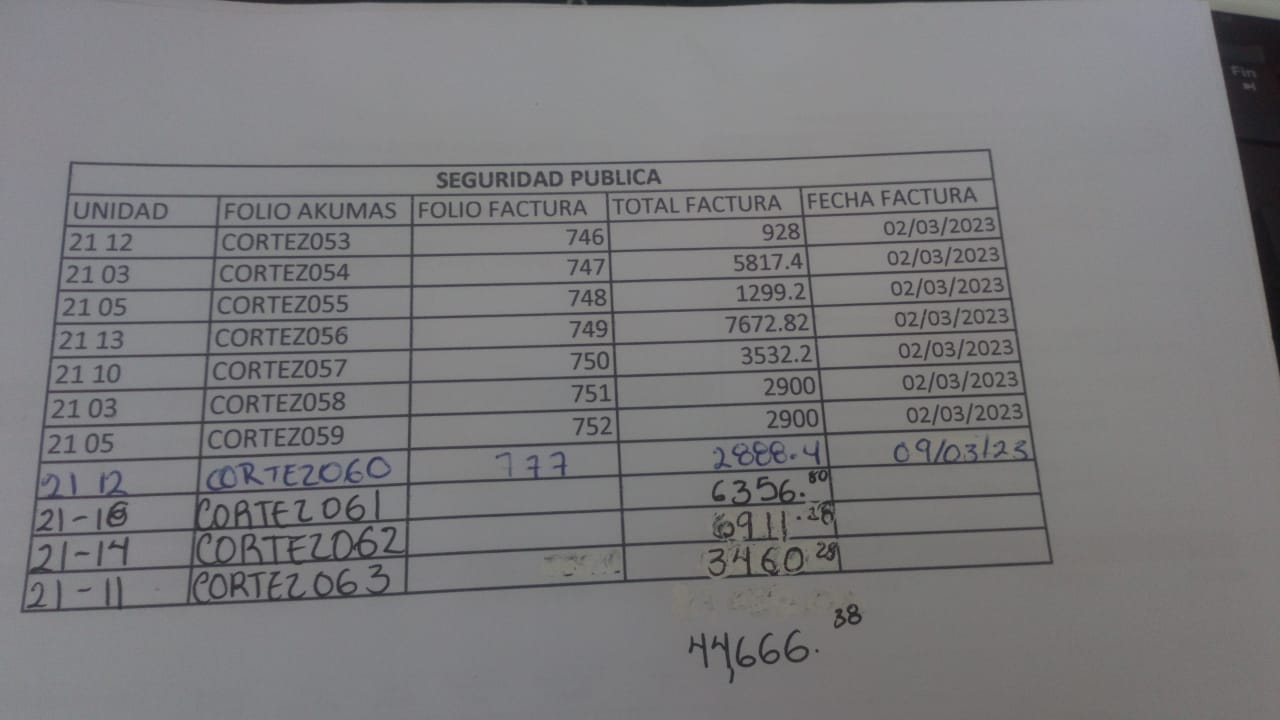 SEGURIDAD PUBLICA
UNIDAD FOLIO AKUMAS FOLIO FACTURA TOTAL FACTURA FECHA FACTURA
21 12 CORTEZ053 746 928 02/03/2023
21 03 CORTEZ054 747 5817.4 02/03/2023
21 05 CORTEZ055 748 1299.2 02/03/2023
21 13 CORTEZ056 749 7672.82 02/03/2023
21 10 CORTEZ057 750 3532.2 02/03/2023
21 03 CORTEZ058 751 2900 02/03/2023
21 05 CORTEZ059 752 2900 02/03/2023
21 12 CORTEZ060 777 2888.4 09/03/23
CORTEZ061 6356.80
21-14 CORTEZ062 6911.28
21-11 CORTEZ063 3460 28
44,666.38
Fin